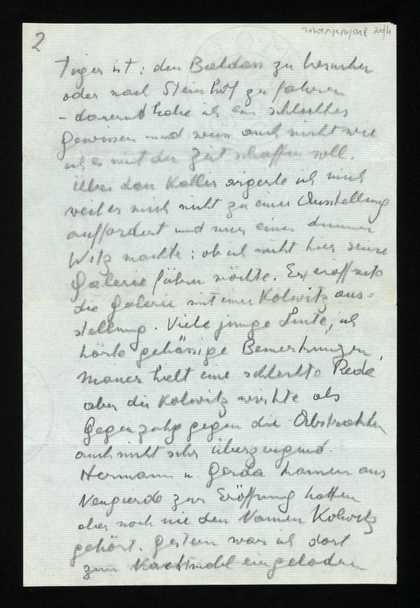 2
Tiger ist: den Baldass zu besuchen
oder nach Steinhof zu fahren
– dauernd habe ich ein schlechtes
Gewissen und weiss auch nicht wie
ich es mit der Zeit schaffen soll.
Über den Kallir ärgerte ich mich
weil er mich nicht zu einer Ausstellung
auffordert und nur einen dummen
Witz machte: ob ich nicht hier seine
Galerie führen möchte. Er eröffnete
die Galerie mit einer Kolwitz aus-
stellung. Viele junge Leute, ich
hörte gehässige Bemerkungen,
Mauer hielt eine schlechte Rede
aber die Kolwitz wirkte als
gegen die Abstrakten
auch nicht sehr überzeugend.
Hermann u. Gerda kamen aus
Neugierde zur Eröffnung hatten
aber noch nie den Namen Kolwitz
gehört. Gestern war ich dort
zum Nachtmahl eingeladen